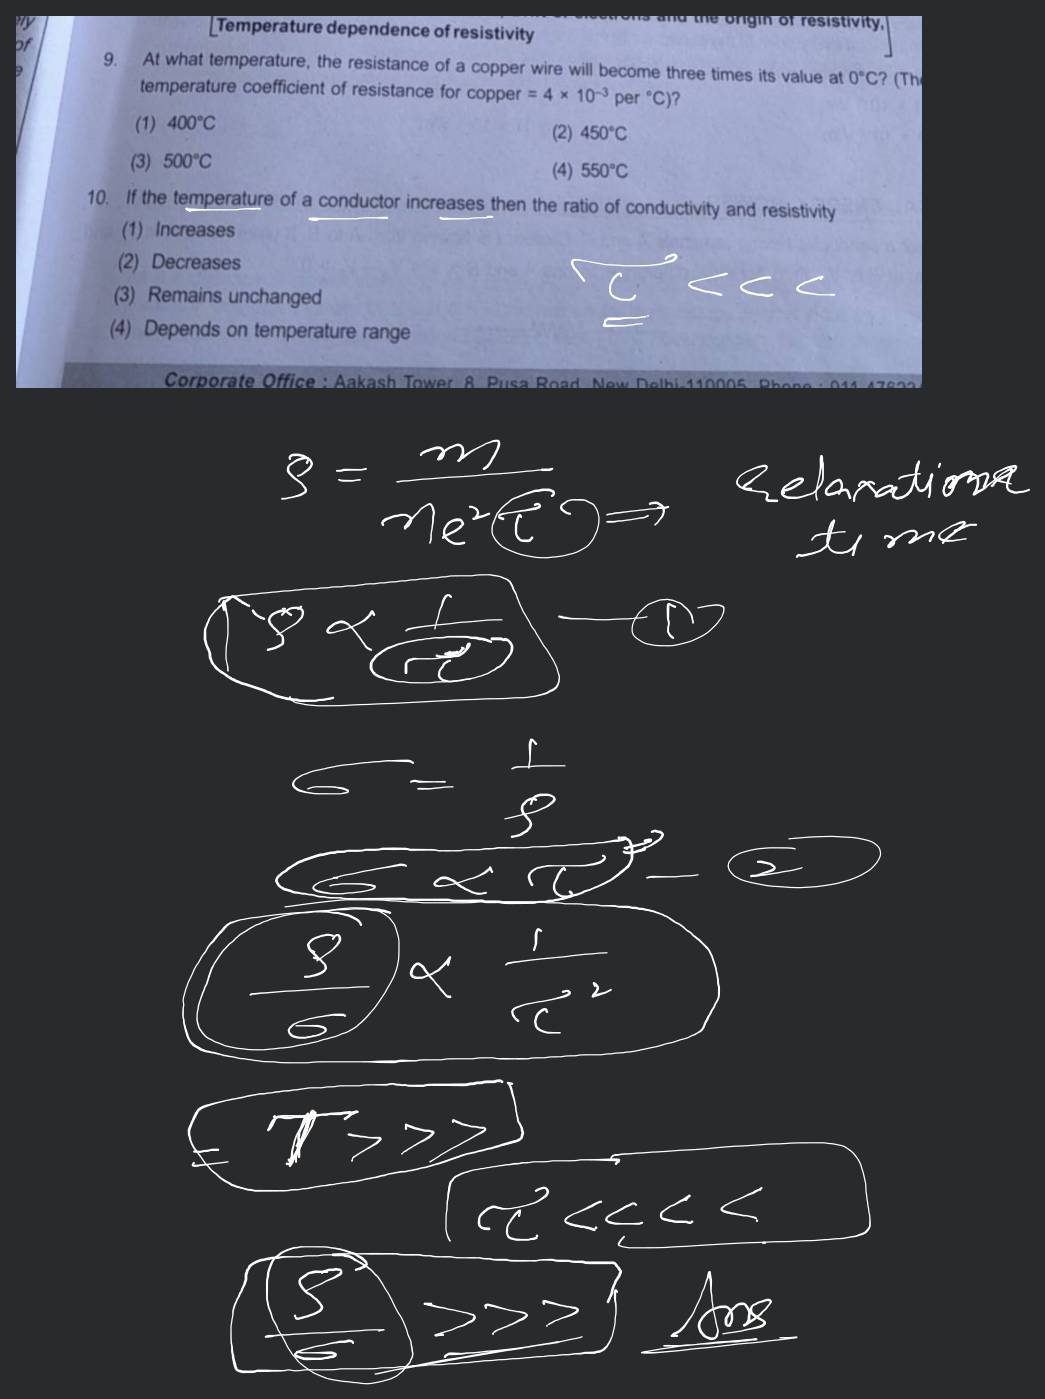 of electrons and the origin of resistivity,
of
Temperature dependence of resistivity
9. At what temperature, the resistance of a copper wire will become three times its value at 0°C? (The
temperature coefficient of resistance for copper = 4 × 10⁻³ per °C)?
(1) 400°C
(2) 450°C
(3) 500°C
(4) 550°C
10. If the temperature of a conductor increases then the ratio of conductivity and resistivity
(1) Increases
(2) Decreases
(3) Remains unchanged
(4) Depends on temperature range
τ <<<
Corporate Office : Aakash Tower, 8, Pusa Road, New Delhi-110005. Phone : 011-47623
ρ = m / ne²τ ⇒ relaxation time
ρ ∝ 1/τ — 1
σ = 1/ρ
σ ∝ τ — 2
ρ/σ ∝ 1/τ²
= T >>>
τ <<<<
ρ/σ >>> Ans